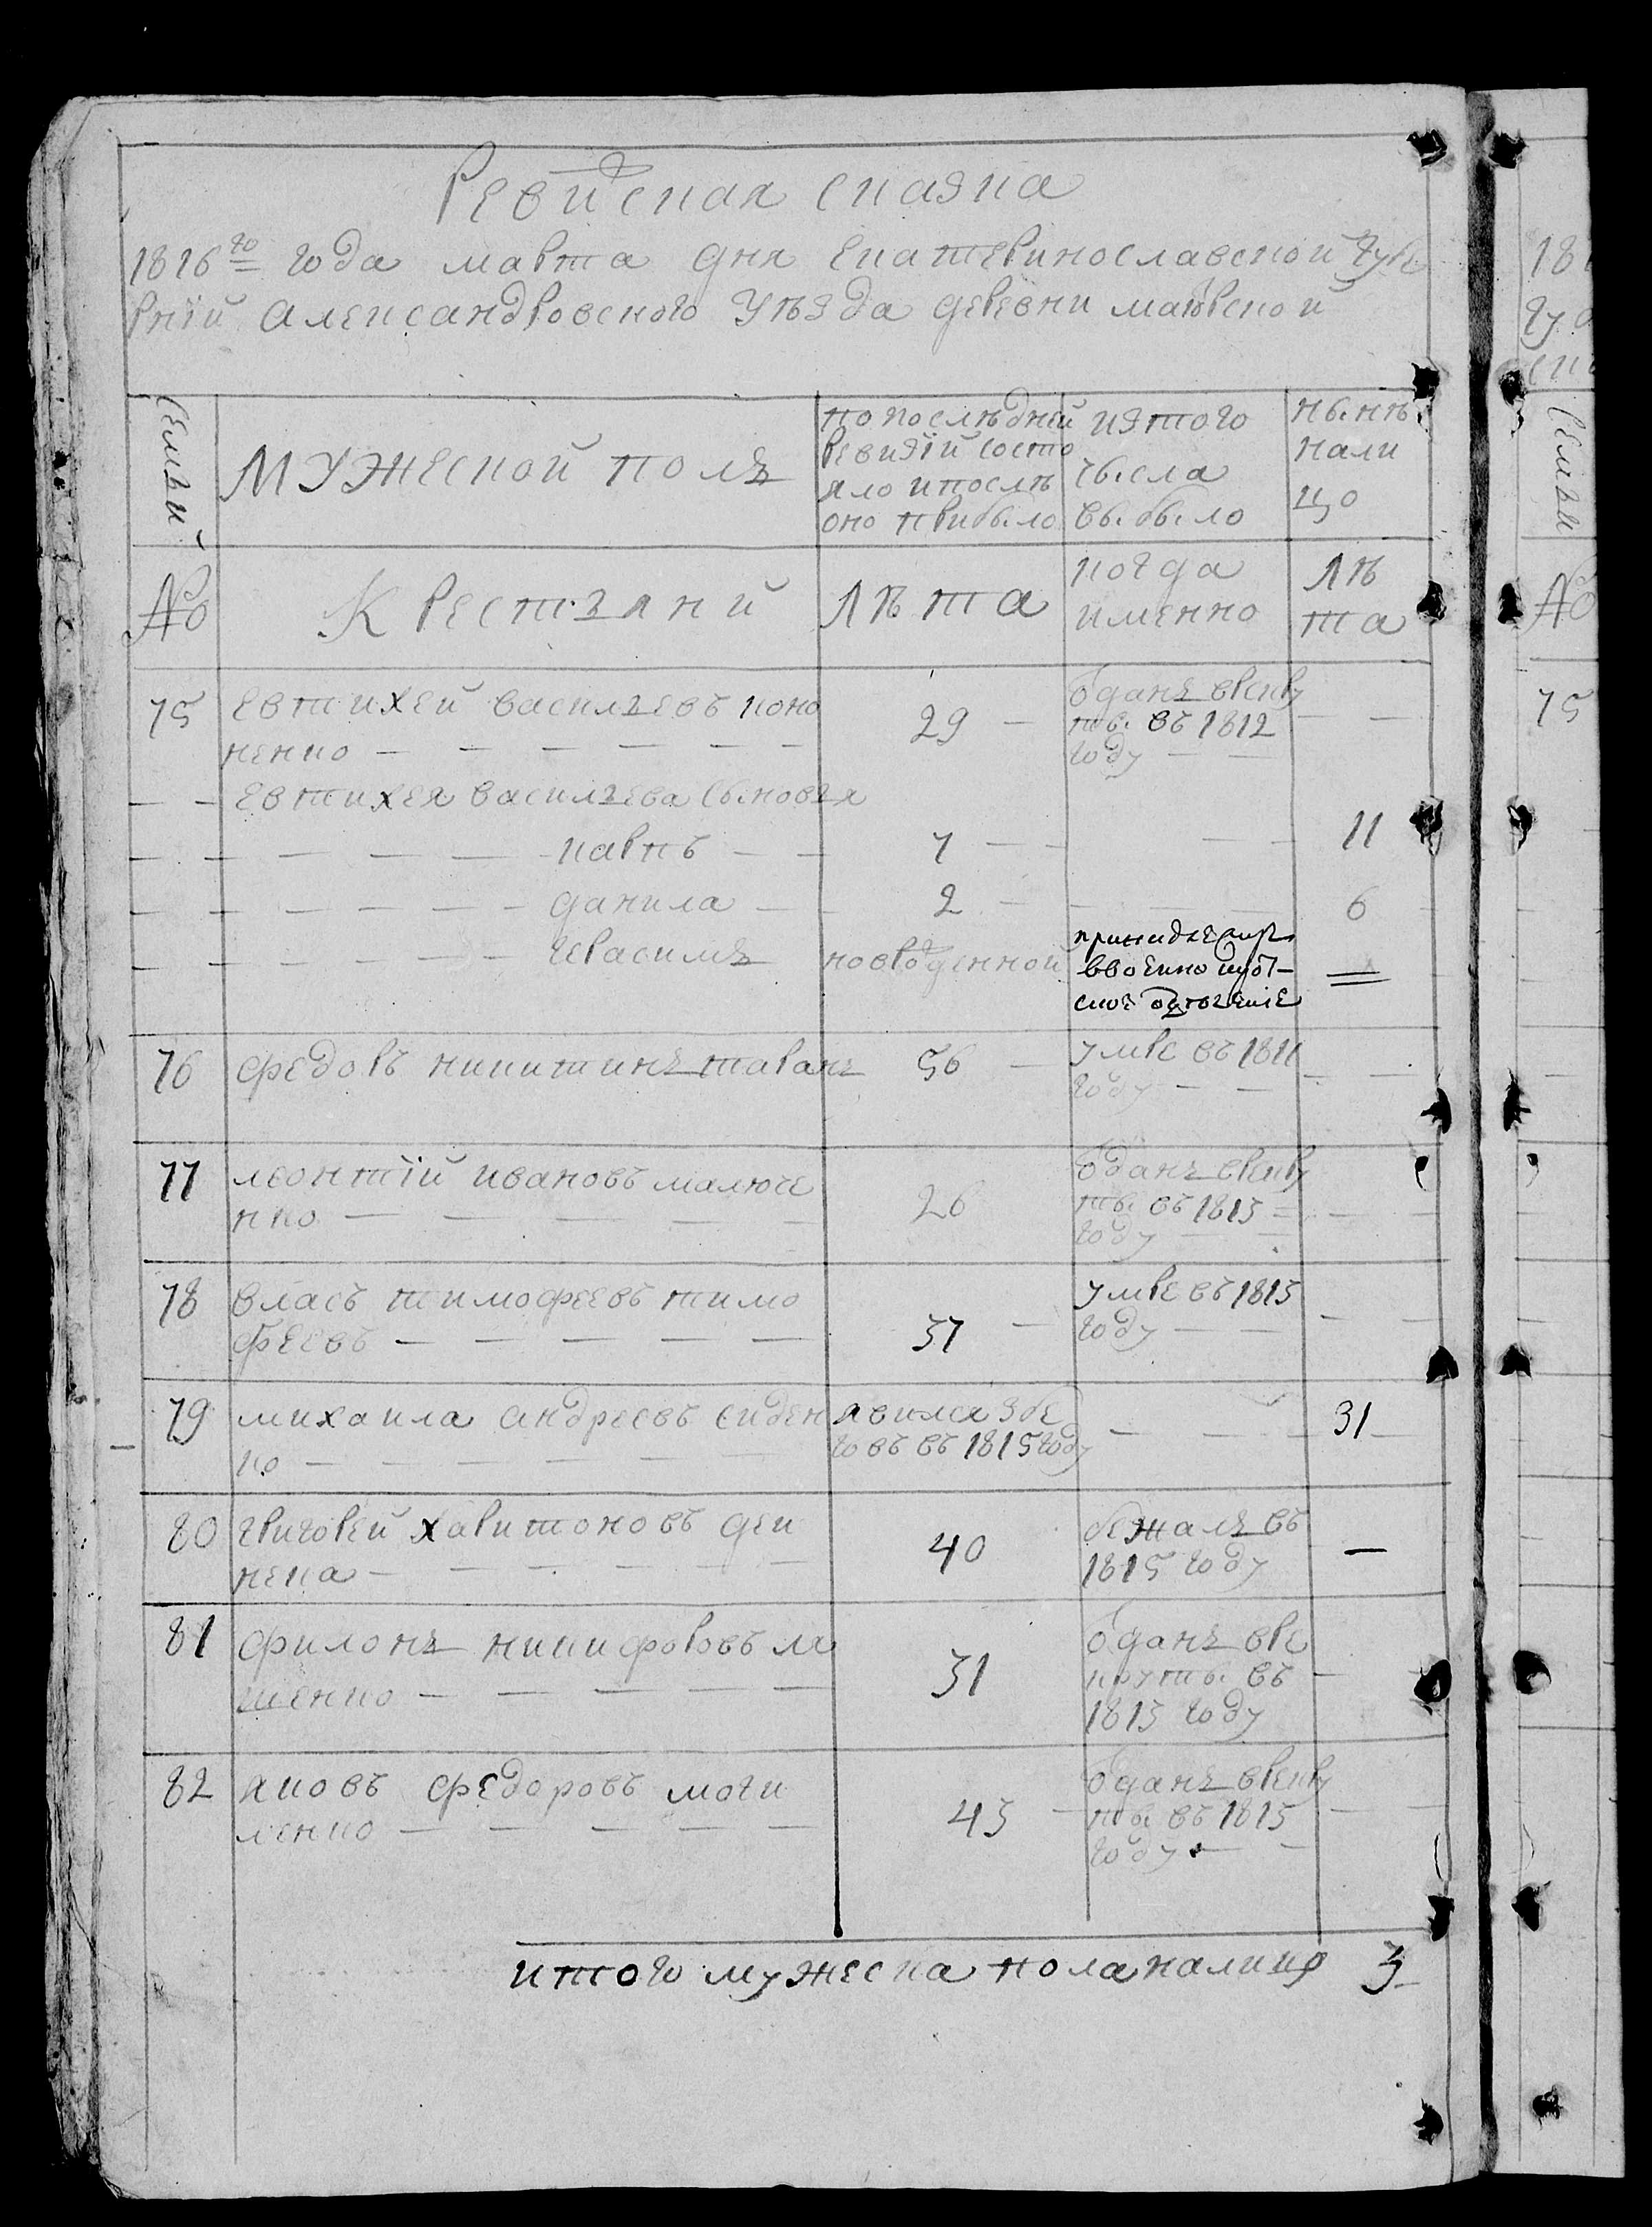 Ревиская сказка
1816го года марта дня Екатеринославской губе
рнїй Александровского Уѣзда деревни маiорской
Семьи
Мужеской полъ
по послѣдней ревизїй состо яло ипослѣ оно прибыло
изтого числа выбыло
нынѣ нали цо
№
Крестьяний
лѣта
когда именно
лѣ та
75 евтихей васильевъ коно 29 — отданъ врекру
ненко — — — — — — ты въ 1812 — —
году — —
— — евтихея васильева сыновья
— — — — — карпъ — — 7 — — — — 11
— — — — — данила — — 2 — — — — 6
— — — — — герасимъ новорожденной
ввоенно сирот-
ское отделение =
76 федоръ никитинъ таранъ 56 — умре въ 1811 — —
году — —
77 леонтїй ивановъ малюче 26 отданъ врекру
нко — — — — — ты въ 1813 — — —
году — —
78 власъ тимофеевъ тимо умре въ 1813
феевъ — — — — — 37 — году — — — —
79 михаила андреевъ сиден явился збе — — — 31 —
ко — — — — — — говъ въ 1815 году
80 григорей харитоновъ дей 40 бежалъ въ —
нека — — — — — 1815 году
81 филонъ никифоровъ ле 31 отданъ вре
шенко — — — — — круты въ —
1813 году
82 яковъ федоровъ моги 43 — отданъ врекру
ленко — — — — — ты въ 1813 — —
году — —
итого мужеска пола налицо 3
18
гу
ск
Семьи
№
75